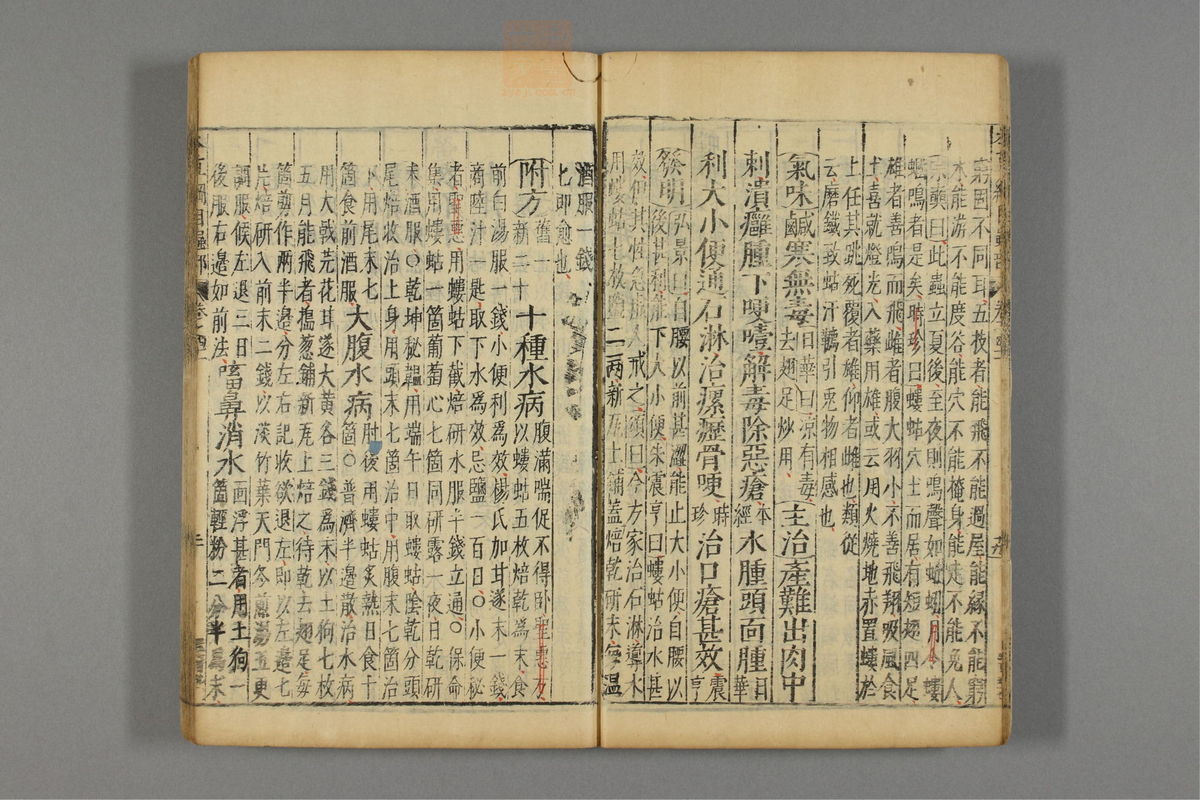 固不同耳五技者能飛不能過屋能緣不能窮
木能游不能度谷能穴不能掩身能走不能免人
宗奭曰此蟲立夏後至夜則鳴聲如蚯蚓月令螻
蟈鳴者是矣時珍曰螻蛄穴土而居有短翅四足
雄者善鳴而飛雌者腹大羽小不善飛翔吸風食
土喜就燈光入藥用雄或云用火燒地赤置螻於
上任其跳死覆者雄仰者雌也類從
云磨鐵致蛄汗鞴引兎物相感也
氣味鹹寒無毒日華曰涼有毒去翅足炒用主治產難出肉中
刺潰癰腫下哽噎解毒除惡瘡本經水腫頭面腫日華
利大小便通石淋治瘰癧骨哽時珍治口瘡甚效震亨
發明弘景曰自腰以前甚澀能止大小便自腰以
後甚利能下大小便朱震亨曰螻蛄治水甚
效但其性急虛人戒之頌曰今方家治石淋導水
用螻蛄七枚鹽二兩新瓦上鋪蓋焙乾研末每溫
酒服一錢
匕即愈也
附方舊一新二十十種水病腹滿喘促不得臥聖惠方
以螻蛄五枚焙乾為末食
前白湯服一錢小便利為效楊氏加甘遂末一錢
商陸汁一匙取下水為效忌鹽一百日〇小便秘
者聖惠用螻蛄下截焙研水服半錢立通〇保命
集用螻蛄一箇葡萄心七箇同研露一夜日乾研
末酒服〇乾坤秘韞用端午日取螻蛄陰乾分頭
尾焙收治上身用頭末七箇治中用腹末七箇治
下用尾末七
箇食前酒服大腹水病肘後用螻蛄炙熟日食十
箇〇普濟半邊散治水病
用大戟芫花甘遂大黃各三錢為末以土狗七枚
五月能飛者搗葱鋪新瓦上焙之待乾去翅足每
箇剪作兩半邊分左右記收欲退左即以左邊七
片焙研入前末二錢以淡竹葉天門冬煎湯五更
調服候左退三日
後服右邊如前法𠹉鼻消水面浮甚者用土狗一
箇輕粉二分半為末